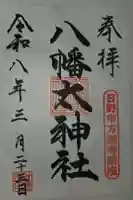 奉拝
八幡大神社
令和八年三月二十三日